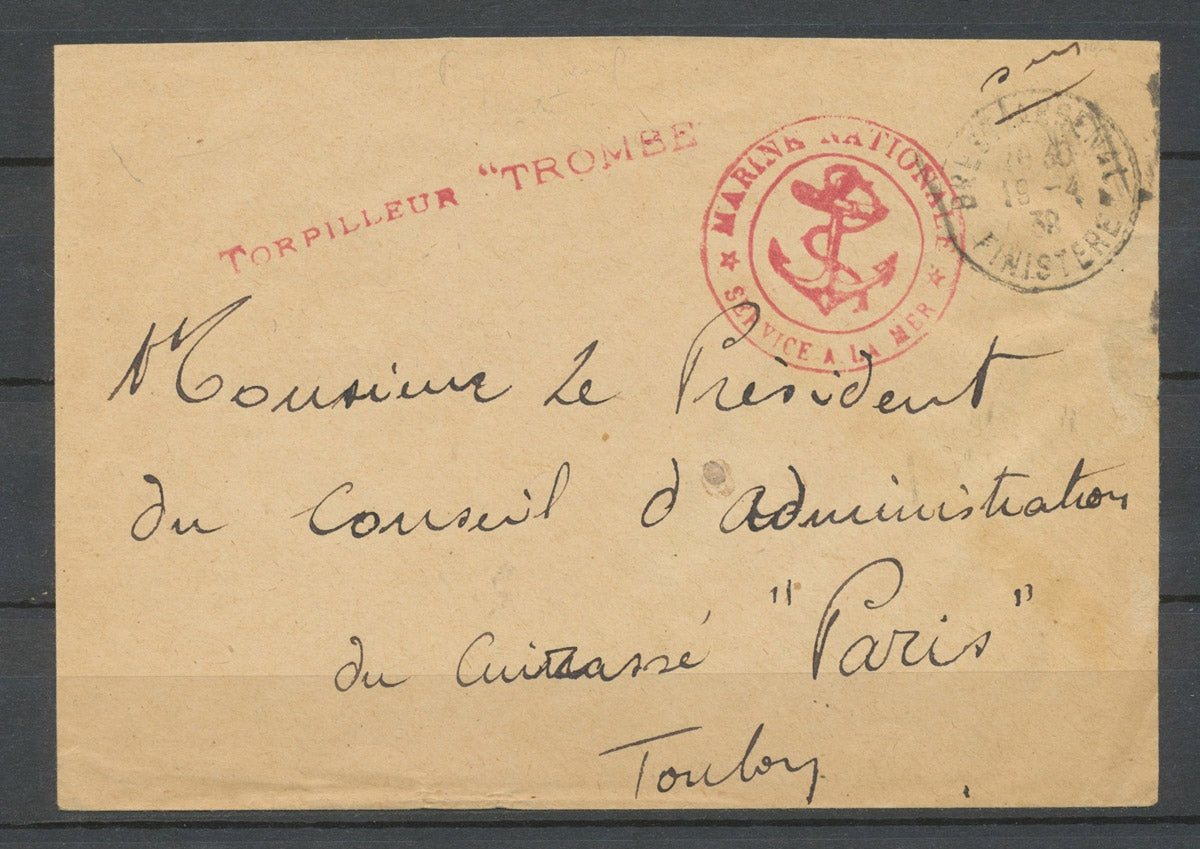 TORPILLEUR "TROMBE"
MARINE NATIONALE
★ SERVICE A LA MER ★
BREST ARSENAL
19 -4
FINISTERE
Monsieur Le Président
du Conseil d'administration
du Cuirassé "Paris"
Toulon